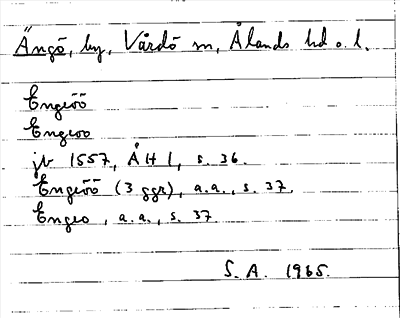 Ängö, by, Vårdö sn, Ålands hd o. l.
Engeöö
Engeoo
jb 1557, ÅH 1, s. 36.
Engeöö (3 ggr), a.a., s. 37.
Engeo, a.a., s. 37
S. A. 1965.